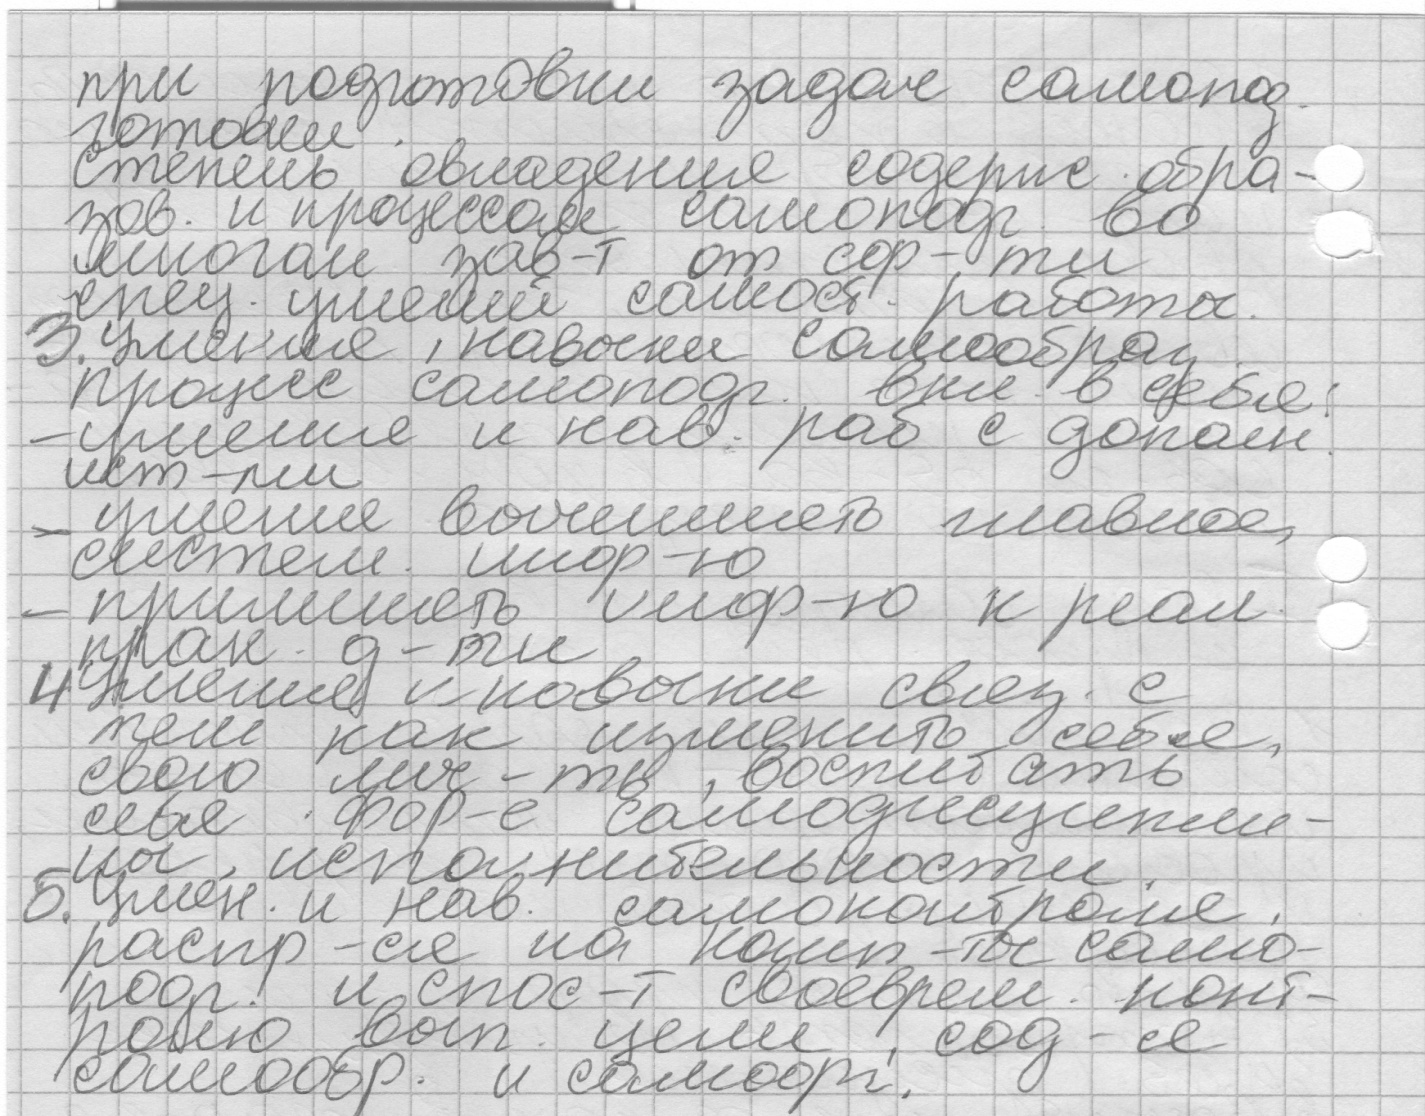 при подготовки задач самопод
готовки.
степень овладения содерж. обра-
зов. и процессом самоподг. во
многом зав-т от сф-ти
спец. умений самост. работы.
3. Умение, навыки самообраз.
процесс самоподг. вкл. в себя:
- умение и нав. раб с дополн.
ист-ми
- умение вычленять главное,
систем. инф-ю
- применять инф-ю к реал.
прак. д-ти
4 Умение и навыки связ. с
тем как изменить себя,
свою лич-ть, воспитать
себя. фор-е самодисципли-
ны, исполнительности.
5. Умен. и нав. самоконтроля.
распр-ся на комп-ты само-
подг. и спос-т своеврем. конт-
ролю вып. цели, сод-я
самообр. и самоорг.